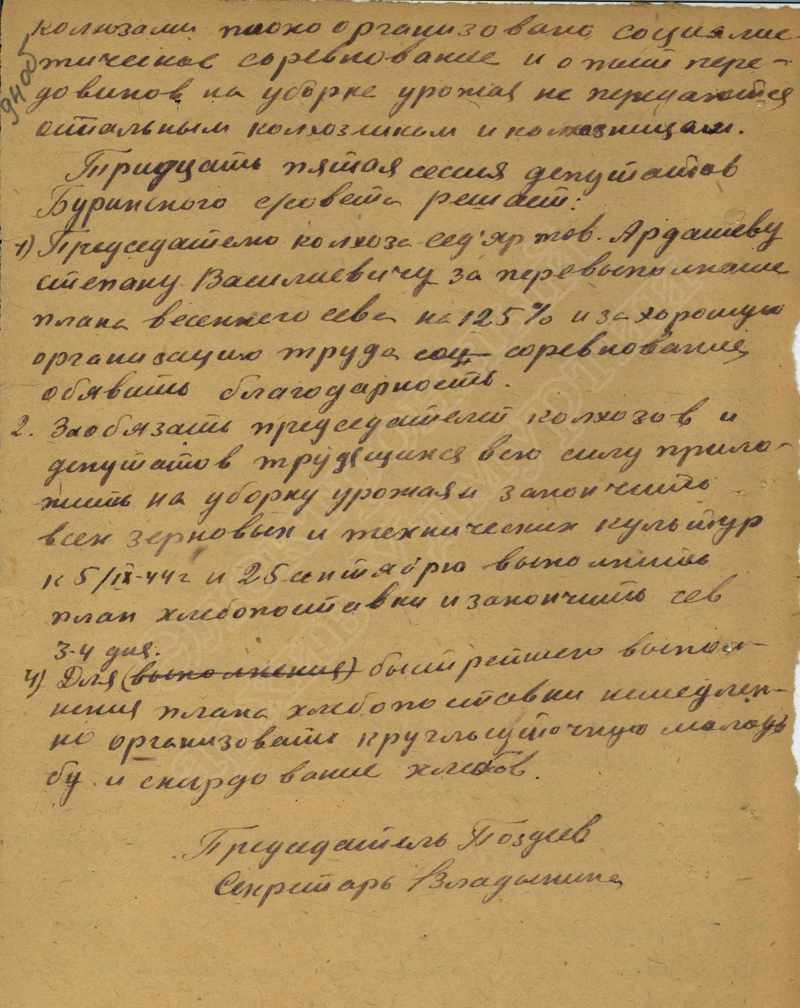 94 об
колхозами плохо организовано социалис-
тическое соревнование и опыт пере-
довиков на уборке урожая не передаются
остальным колхозникам и колхозницам.
Тридцать пятая сессия депутатов
Буринского с/совета решает:
1) Председателю колхоза Сед'яр тов. Ардашеву
степану Василиевичу за перевыполнение
плана весеннего сева на 125% и за хорошую
организацию труда соц соревнования
обявить благодарность.
2. Заобязать председателей колхозов и
депутатов трудящихся всю силу прило-
жить на уборку урожая и закончить
всех зерновых и технических культур
к 5/IX-44г и 25 сентябрю выполнить
план хлебопоставки и закончить сев
3-4 дня.
4) Для (выполнения) быстрейшего выпол-
нения плана хлебопоставки немедлен-
но организовать круглысуточную молоть
бу и скирдование хлебов.
Председатель Поздеев
Секретарь Владыкина